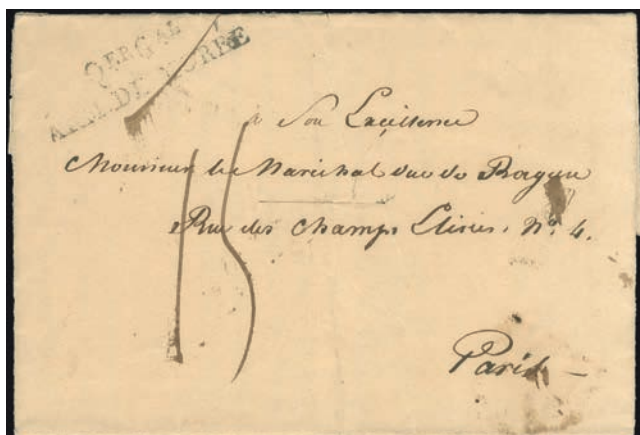 QERGAL
ARM. DE MOREE
à Son Excellence
Monsieur le Maréchal Duc de Raguse
Rue des Champs Elisées. N° 4.
15
Paris